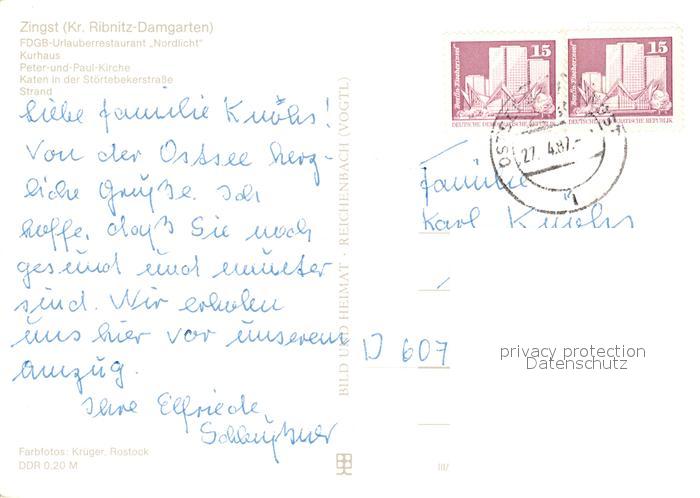 Zingst (Kr. Ribnitz-Damgarten)
FDGB-Urlauberrestaurant „Nordlicht"
Kurhaus
Peter-und-Paul-Kirche
Katen in der Störtebekerstraße
Strand
Liebe Familie Knöhs!
Von der Ostsee herz-
liche Grüße. Ich
hoffe, daß Sie noch
gesund und munter
sind. Wir erholen
uns hier vor unserem
Umzug.
Ihre Elfriede
Farbfotos: Krüger, Rostock
DDR 0,20 M
BILD UND HEIMAT · REICHENBACH (VOGTL)
III/
15
Berlin-Fischerinsel
DEUTSCHE DEMOKRATISCHE REPUBLIK
15
Berlin-Fischerinsel
DEUTSCHE DEMOKRATISCHE REPUBLIK
27. 4.87.-
Familie
Karl Knöhs
D 607
privacy protection
Datenschutz